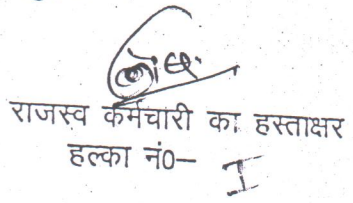 राजस्व कर्मचारी का हस्ताक्षर
हल्का नं0– I